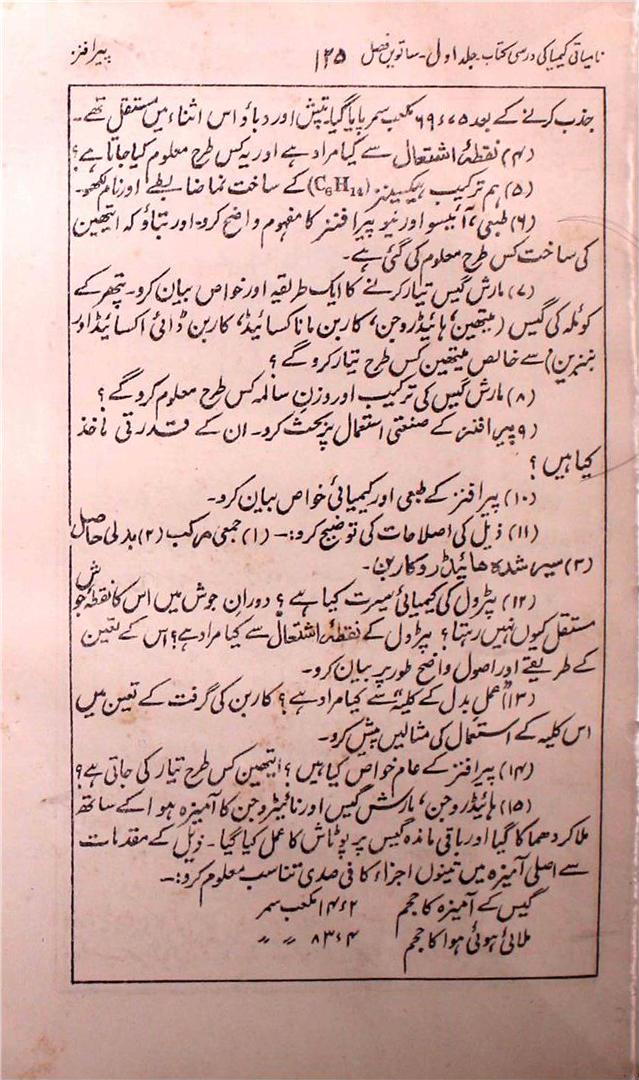 نامیاتی کیمیا کی درسی کتاب۔ جلد اول۔ ساتویں فصل ۱۲۵ پیرافنز
جذب کرنے کے بعد ۶۹۶۷۵ مکعب سمر پایا گیا۔ تپش اور دباؤ اس اثناء میں مستقل تھے۔
(۴) نقطۂ اشتعال سے کیا مراد ہے اور یہ کس طرح معلوم کیا جاتا ہے؟
(۵) ہم ترکیب ہیکسینز (C6H14) کے ساخت نما ضابطے اور نام لکھو۔
(۶) طبعی، آئیسو اور نیو پیرافنز کا مفہوم واضح کرو۔ اور بتاؤ کہ ایتھین
کی ساخت کس طرح معلوم کی گئی ہے۔
(۷) مارش گیس تیار کرنے کا ایک طریقہ اور خواص بیان کرو۔ پتھر کے
کوئلہ کی گیس (میتھین، ہائیڈروجن، کاربن مانا کسائیڈ، کاربن ڈائی اکسائیڈ اور
بنزین) سے خالص میتھین کس طرح تیار کرو گے؟
(۸) مارش گیس کی ترکیب اور وزن سالمہ کس طرح معلوم کرو گے؟
(۹) پیرافنز کے صنعتی استعمال پر بحث کرو۔ ان کے قدرتی ماخذ
کیا ہیں؟
(۱۰) پیرافنز کے طبعی اور کیمیائی خواص بیان کرو۔
(۱۱) ذیل کی اصلاحات کی توضیح کرو:— (۱) جمعی مرکب (۲) بدلی حاصل
(۳) سیر شدہ ہائیڈروکاربن۔
(۱۲) پٹرول کی کیمیائی سیرت کیا ہے؟ دوران جوش میں اس کا نقطۂ جوش
مستقل کیوں نہیں رہتا؟ پٹرول کے نقطۂ اشتعال سے کیا مراد ہے؟ اس کے تعین
کے طریقے اور اصول واضح طور پر بیان کرو۔
(۱۳) "عمل بدل کے کلیہ" سے کیا مراد ہے؟ کاربن کی گرفت کے تعین میں
اس کلیہ کے استعمال کی مثالیں پیش کرو۔
(۱۴) پیرافنز کے عام خواص کیا ہیں؟ ایتھین کس طرح تیار کی جاتی ہے؟
(۱۵) ہائیڈروجن، مارش گیس اور نائیٹروجن کا آمیزہ ہوا کے ساتھ
ملا کر دھماکا گیا اور باقی ماندہ گیس پر پوٹاش کا عمل کیا گیا۔ ذیل کے مقدمات
سے اصلی آمیزہ میں تینوں اجزاء کا فی صدی تناسب معلوم کرو:—
گیس کے آمیزہ کا حجم ۱۴۶۲ مکعب سمر
ملائی ہوئی ہوا کا حجم ۸۳۶۴ 〃 〃